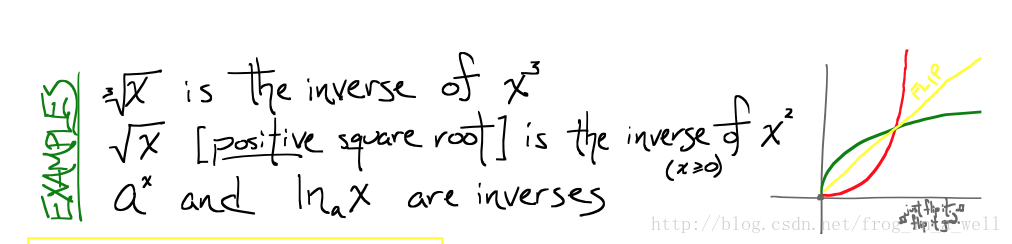 EXAMPLES
∛x is the inverse of x³
√x [positive square root] is the inverse of x²
(x≥0)
aˣ and lnₐx are inverses
FLIP
just flip it
flip it
http://blog.csdn.net/frog_in_a_well